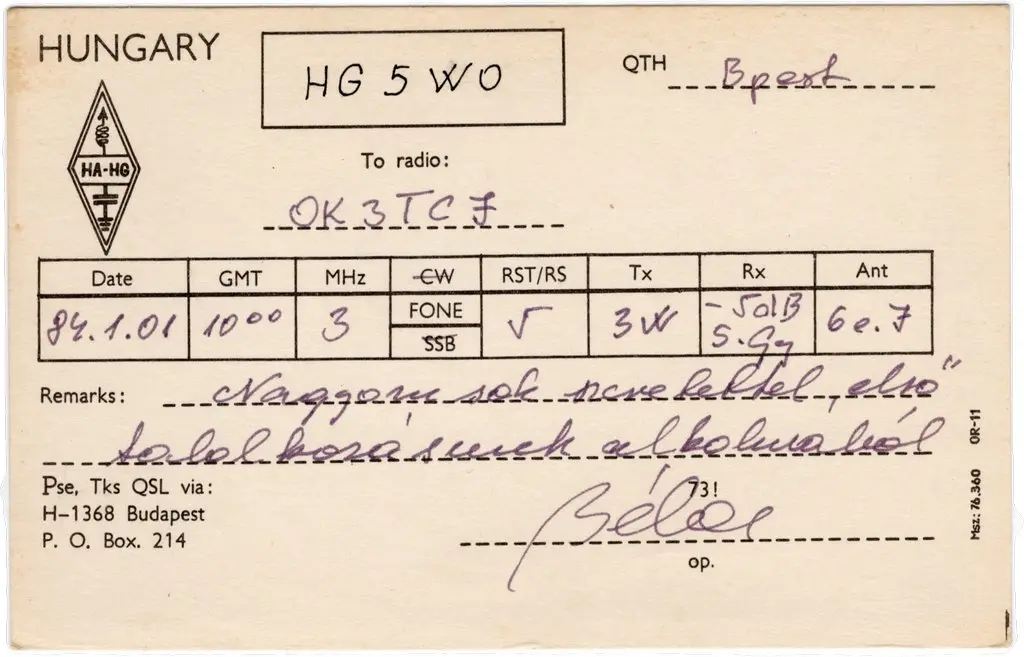 HUNGARY
HG5WO
QTH Bpest
HA-HG
To radio:
OK3TCJ
Date GMT MHz CW RST/RS Tx Rx Ant
84.1.01 10⁰⁰ 3 FONE 5 3W -5dB 6e.7
SSB S.Gy
Remarks: Nagyon sok szeretettel „első”
találkozásunk alkalmából
Pse, Tks QSL via: 73!
H-1368 Budapest Béla
P. O. Box. 214
op.
Msz: 76.360 OR-11